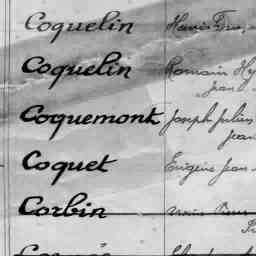 Coquelin Henri
Coquelin Romain Hy
Jean
Coquemont Joseph Julien
Jean
Coquet Eugène Jean
Corbin